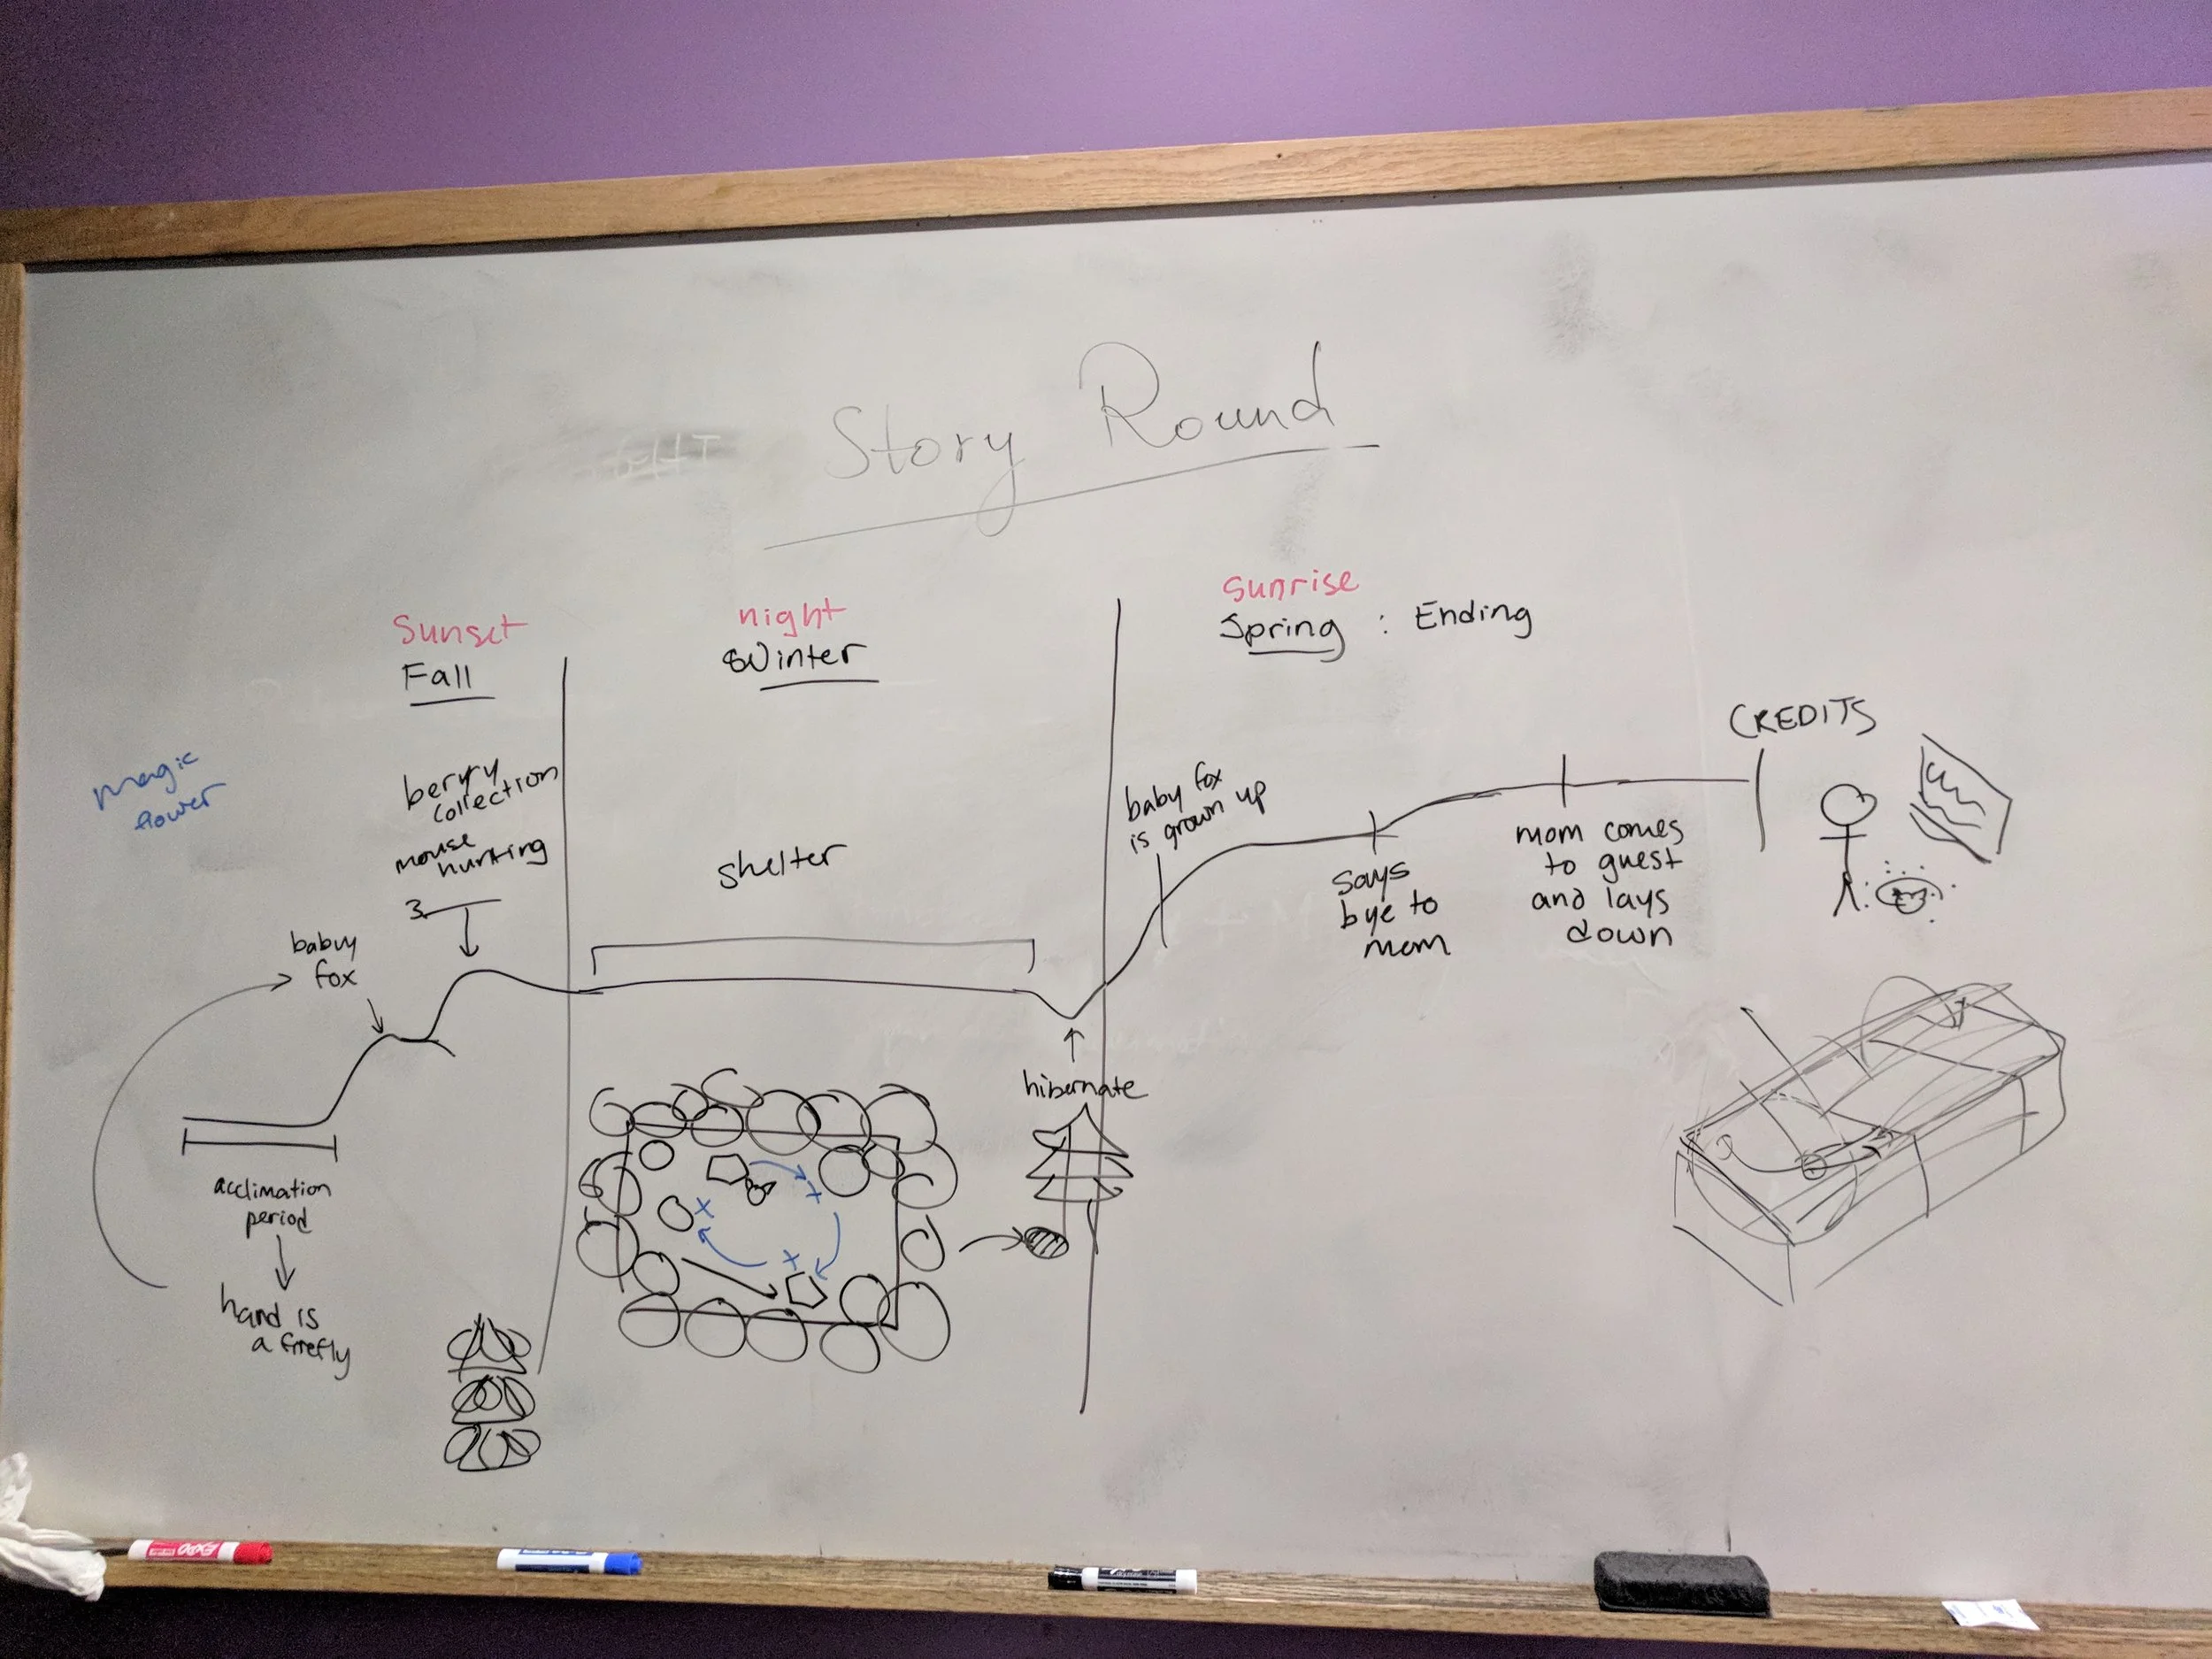 Story Round
Sunset
Fall
night
Winter
sunrise
Spring : Ending
magic
flower
berry
collection
mouse
hunting
3
baby
fox
acclimation
period
hand is
a firefly
shelter
hibernate
baby fox
is grown up
says
bye to
mom
mom comes
to guest
and lays
down
CREDITS
EXPO